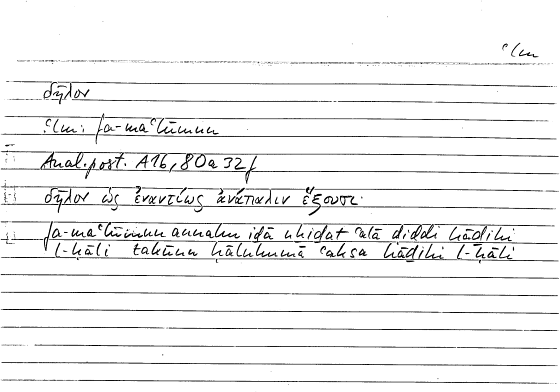 ʿlm
δῆλον
ʿlm: fa-maʿlūmun
Anal. post. A 16, 80a32f
δῆλον ὡς ἐναντίως ἀνάπαλιν ἕξουσι·
fa-maʿlūmun annahu iḏā uḫiḏat ʿalā ḍiddi hāḏihi
l-ḥāli takūnu ḥāluhumā ʿaksa hāḏihi l-ḥāli